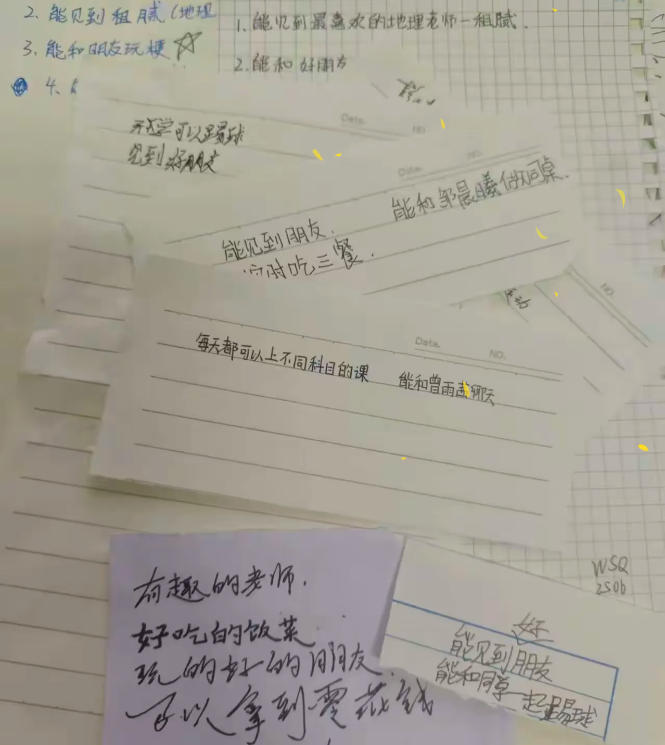 2. 能见到租腻(地理
3. 能和朋友玩梗☆
4.
1. 能见到最喜欢的地理老师一租腻.
2. 能和好朋友
Date.
NO.
开学可以踢球
见到好朋友
Date.
NO.
能见到朋友. 能和邹晨曦做同桌.
定时吃三餐.
NO.
Date. NO.
每天都可以上不同科目的课 能和曾雨 聊天
有趣的老师.
好吃的饭菜
玩的好的朋友
可以拿到零花钱
WSQ
2506
能见到朋友
能和同桌一起踢球